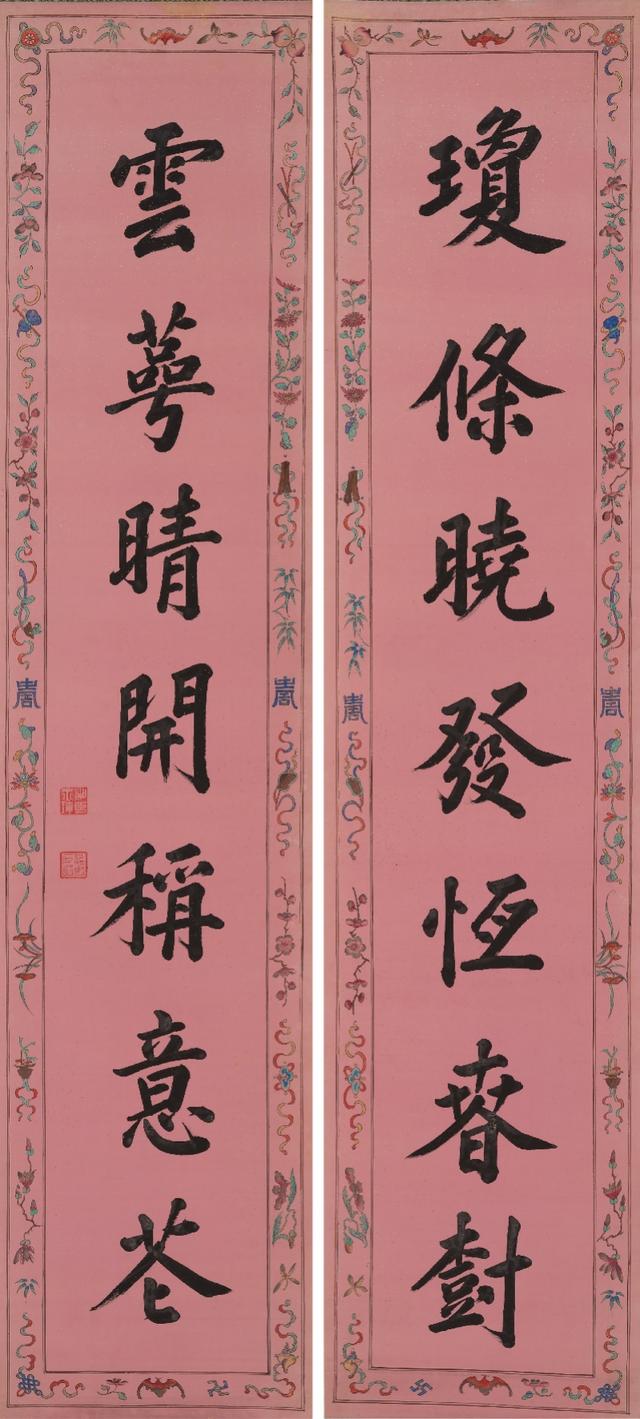 瓊條曉發恆春樹
雲萼晴開稱意花